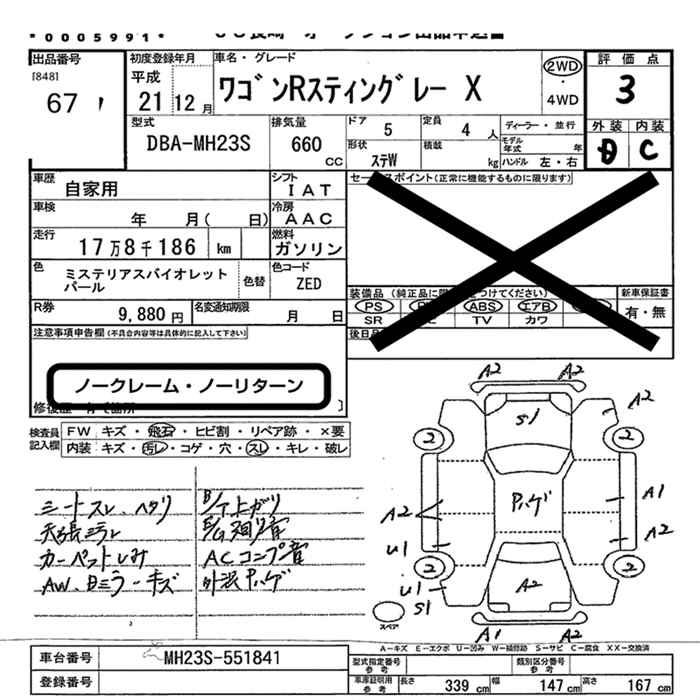 *0005991*
出品番号
[848]
67
初度登録年月
平成
21 12月
車名・グレード
ワゴンRスティングレー X
2WD
・
4WD
評価点
3
外装 内装
D C
型式
DBA-MH23S
排気量
660
CC
ドア 5
定員 4 人
形状 ステW
積載 kg
ディーラー・並行
モデル年式 年
ハンドル 左・右
車歴 自家用
シフト
IAT
車検 年 月( 日)
冷房
AAC
走行 17万8千186 km
燃料
ガソリン
色 ミステリアスバイオレット
パール
色替
色コード
ZED
R券 9,880 円
名変通知期限
月 日
セ スポイント(正常に機能するものに限ります)
装備品(純正品に つけてください)
新車保証書
PS ABS エアB
SR TV カワ
有・無
後日
注意事項申告欄(不具合内容等は具体的に記入して下さい)
ノークレーム・ノーリターン
検査員
記入欄
FW キズ・飛石・ヒビ割・リペア跡・×要
内装 キズ・汚レ・コゲ・穴・スレ・キレ・破レ
シートスレ、ヘタリ
天張ヨゴレ
カーペットしみ
AW、ドミラーキズ
ACコンプ音
外装Pハゲ
A2 A2
S1 A2
2 2
Pハゲ
A2 A1
U1 A2
2 2
U1 S1
A2
スペア
A1 A2
A-キズ E-エクボ U-凹み W-補修跡 S-サビ C-腐食 XX-交換済
車台番号 MH23S-551841
登録番号
型式指定番号
参考
類別区分番号
参考
車庫証明用
参考
長さ 339 cm 幅 147 cm 高さ 167 cm